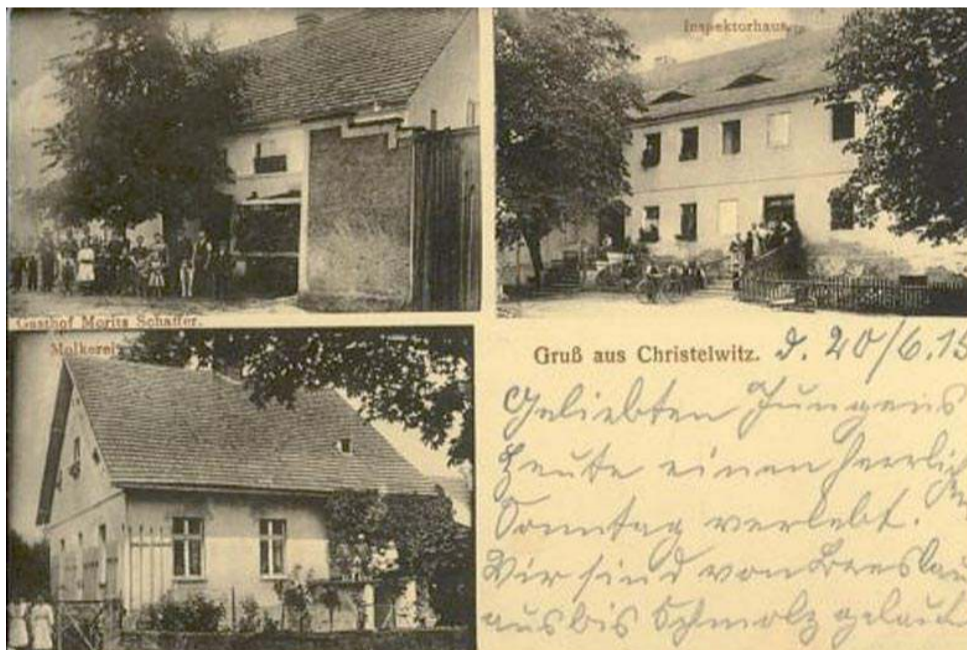 Inspektorhaus.
Gasthof Moritz Schaffer.
Molkerei.
Gruß aus Christelwitz. d. 20/6.15
Geliebten Jungens
Heute einen herrlich
Sonntag verlebt.
Wir sind von Breslau
aus bis Schmolz gelauf